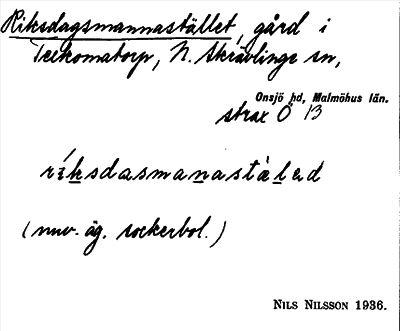 Riksdagsmannastället, gård i
Trekomatorp, N. Skrävlinge sn,
Onsjö hd, Malmöhus län.
strax Ö B
ríksdasmanastàled
(nuv. äg. sockerbol.)
NILS NILSSON 1936.